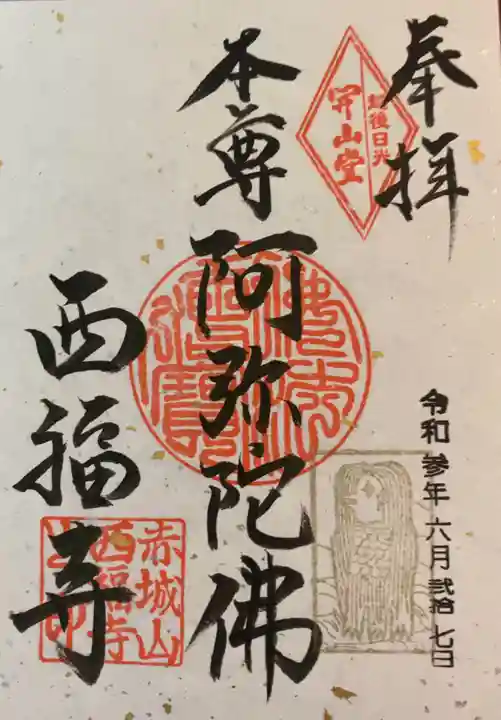 奉拝
越後日光
開山堂
令和参年六月弐拾七日
本尊阿弥陀佛
西福寺
赤城山
西福寺